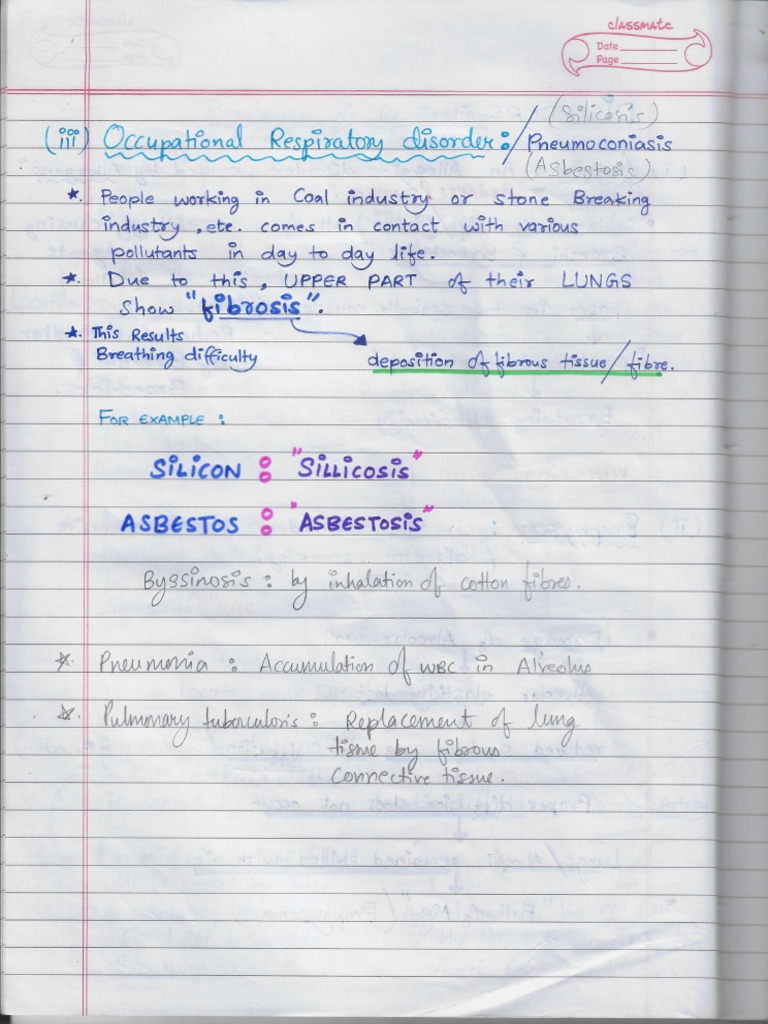 classmate
Date
Page
(Silicosis)
(iii) Occupational Respiratory disorder:/ Pneumoconiasis
(Asbestosis)
* People working in Coal industry or stone Breaking
industry, etc. comes in contact with various
pollutants in day to day life.
* Due to this, UPPER PART of their LUNGS
show "fibrosis".
* This Results
Breathing difficulty
deposition of fibrous tissue/fibre.
FOR EXAMPLE :
SILICON : "SILLICOSIS"
ASBESTOS : "ASBESTOSIS"
Byssinosis : by inhalation of cotton fibres.
* Pneumonia : Accumulation of WBC in Alveolus
* Pulmonary tuberculoris : Replacement of lung
tissue by fibrous
Connective tissue.